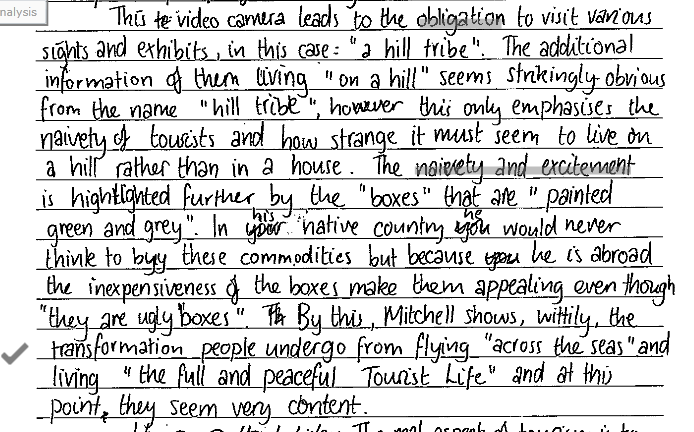 nalysis
This video camera leads to the obligation to visit various
sights and exhibits, in this case: "a hill tribe". The additional
information of them living "on a hill" seems strikingly obvious
from the name "hill tribe", however this only emphasises the
naivety of tourists and how strange it must seem to live on
a hill rather than in a house. The naivety and excitement
is hightlighted further by the "boxes" that are "painted
green and grey". In his "native country he would never
think to buy these commodities but because he is abroad
the inexpensiveness of the boxes make them appealing even though
"they are ugly boxes". By this, Mitchell shows, wittily, the
transformation people undergo from flying "across the seas" and
living "the full and peaceful Tourist Life" and at this
point, they seem very content.